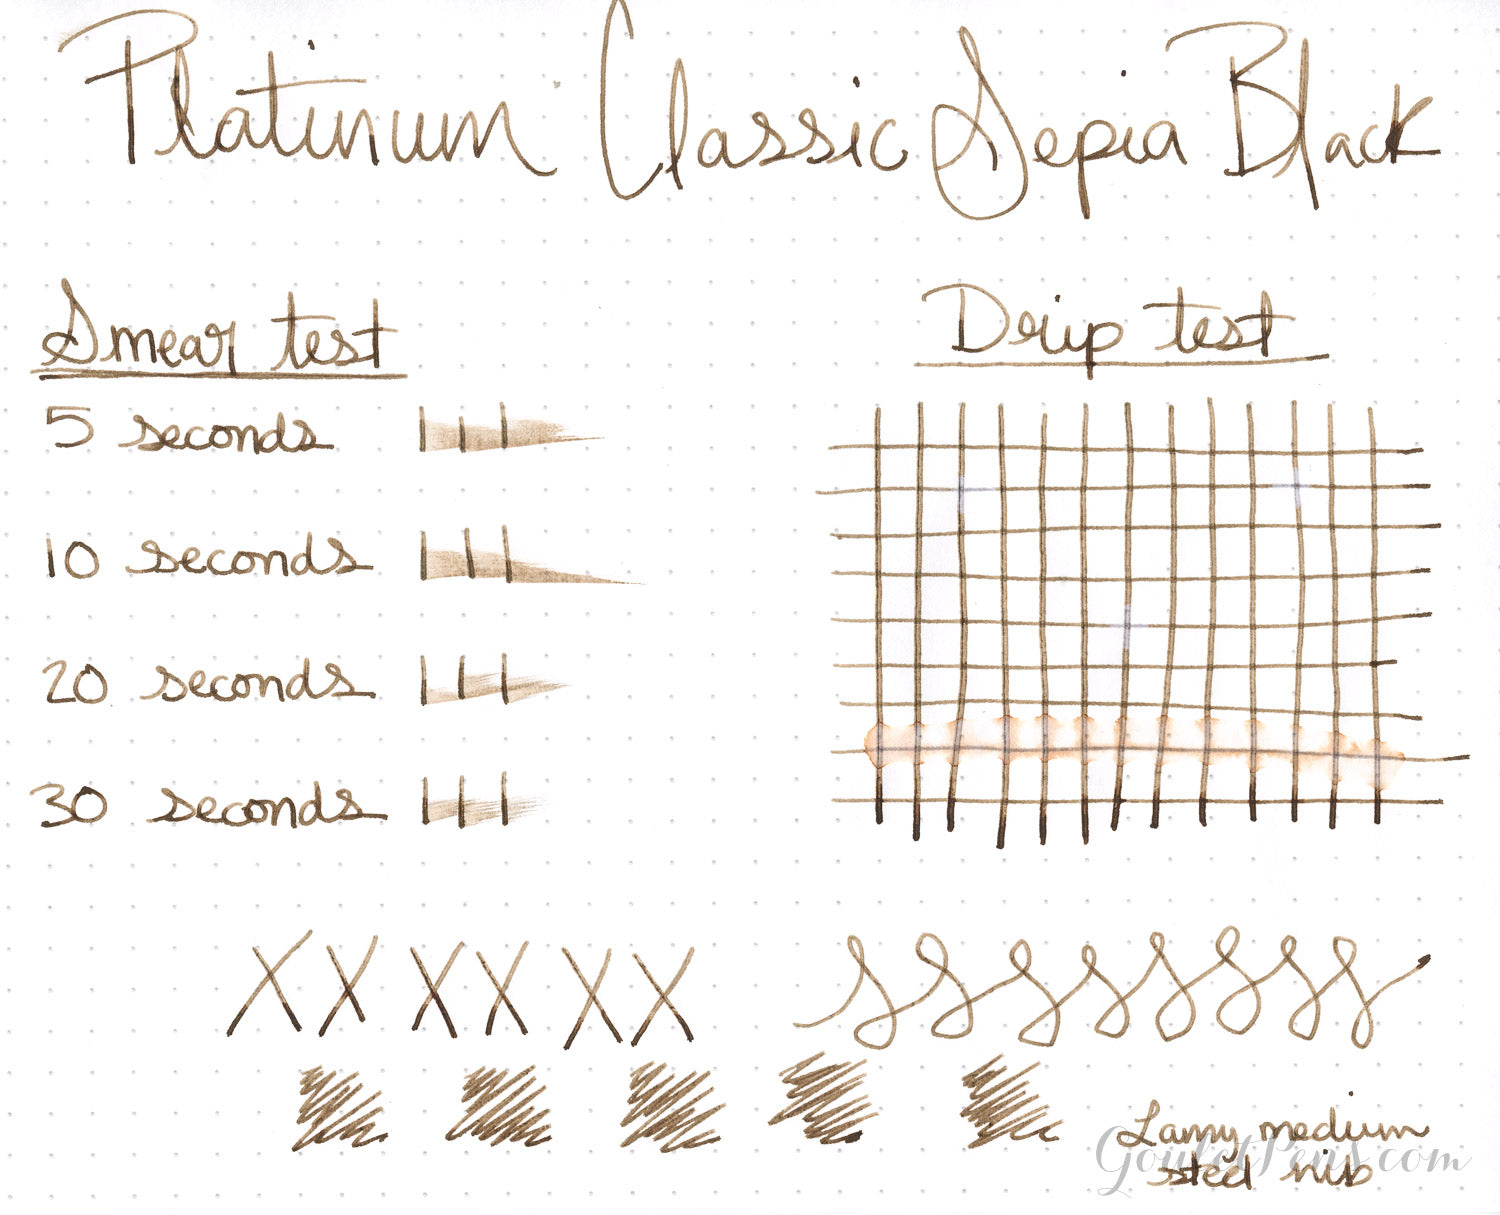 Platinum Classic Sepia Black
Smear test
5 seconds
10 seconds
20 seconds
30 seconds
Drip test
XX XX XX
Lamy medium
steel nib
GouletPens.com